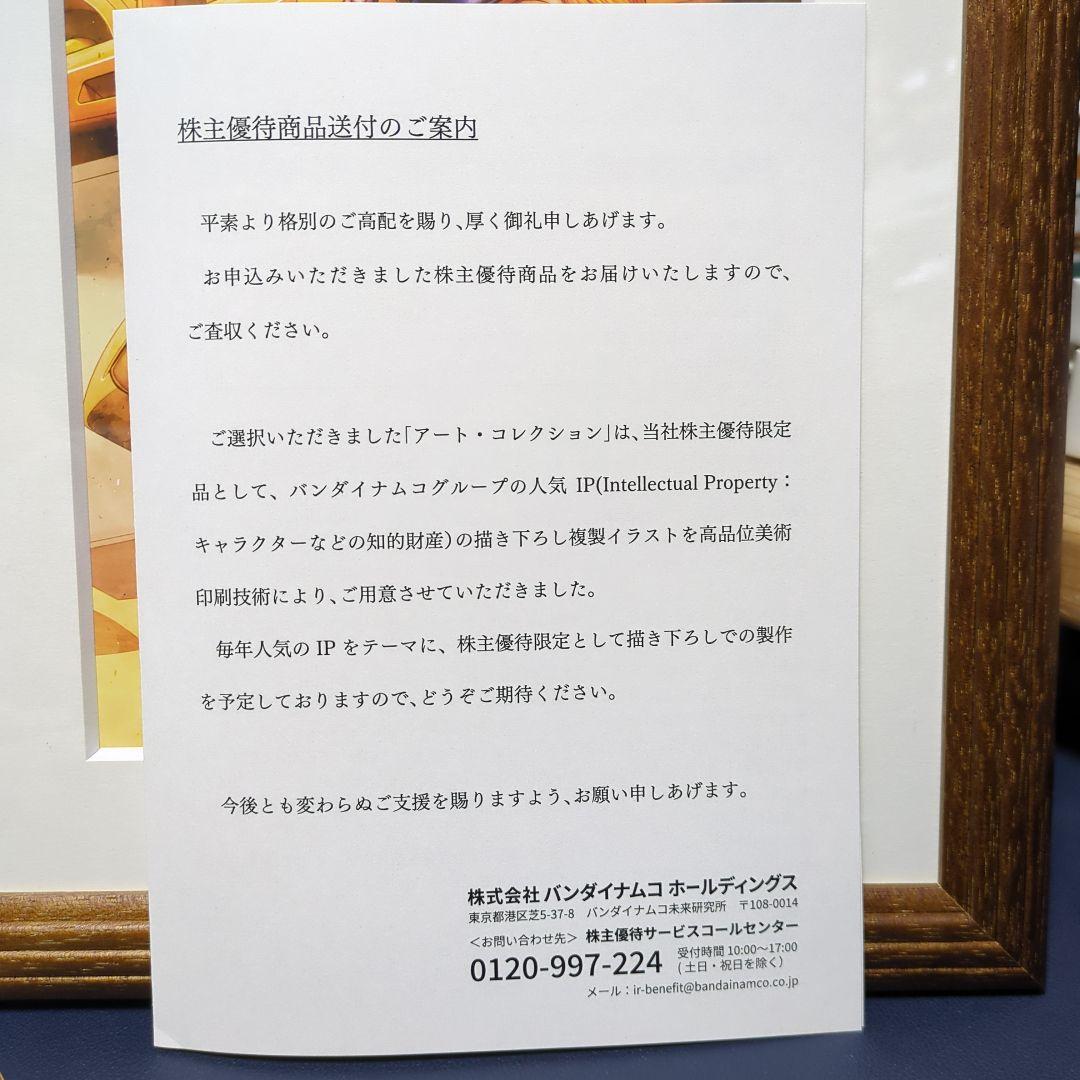 株主優待商品送付のご案内
平素より格別のご高配を賜り、厚く御礼申しあげます。
お申込みいただきました株主優待商品をお届けいたしますので、
ご査収ください。
ご選択いただきました「アート・コレクション」は、当社株主優待限定
品として、バンダイナムコグループの人気 IP(Intellectual Property：
キャラクターなどの知的財産)の描き下ろし複製イラストを高品位美術
印刷技術により、ご用意させていただきました。
毎年人気の IP をテーマに、株主優待限定として描き下ろしでの製作
を予定しておりますので、どうぞご期待ください。
今後とも変わらぬご支援を賜りますよう、お願い申しあげます。
株式会社 バンダイナムコ ホールディングス
東京都港区芝5-37-8 バンダイナムコ未来研究所 〒108-0014
＜お問い合わせ先＞ 株主優待サービスコールセンター
0120-997-224 受付時間 10:00～17:00
(土日・祝日を除く)
メール：ir-benefit@bandainamco.co.jp